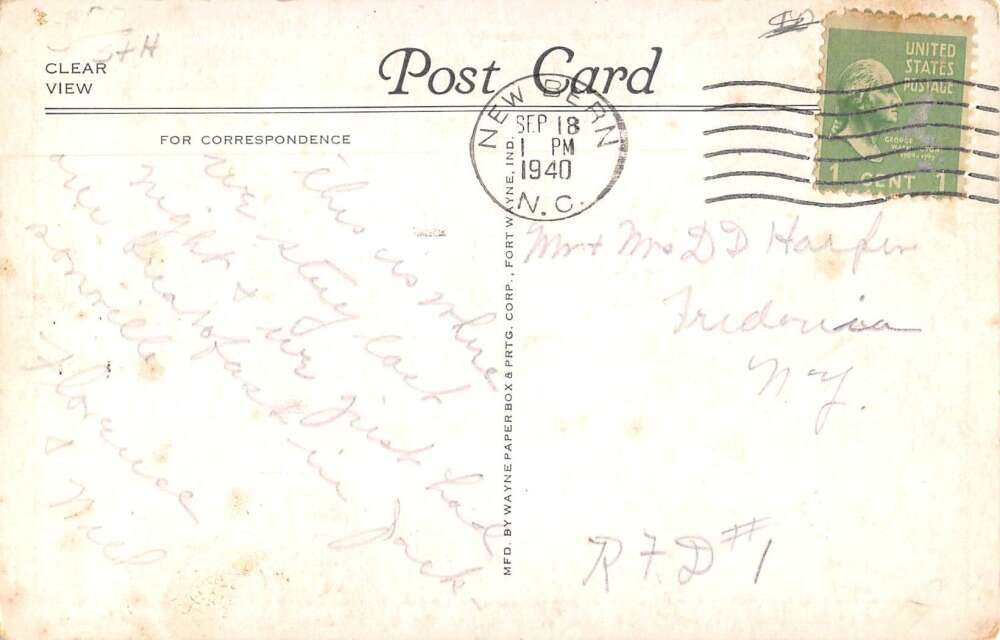 CLEAR
VIEW
Post Card
FOR CORRESPONDENCE
NEW BERN
SEP 18
1 PM
1940
N.C.
UNITED
STATES
POSTAGE
GEORGE
WASHINGTON
1 CENT 1
this is where
we stay last
night & we just had
are breakfast in Jack-
sonville
Florence
& Will
MFD. BY WAYNE PAPER BOX & PRTG. CORP., FORT WAYNE, IND.
Mr + Mrs D D Harper
Fredonia
N-Y.
R F D #1